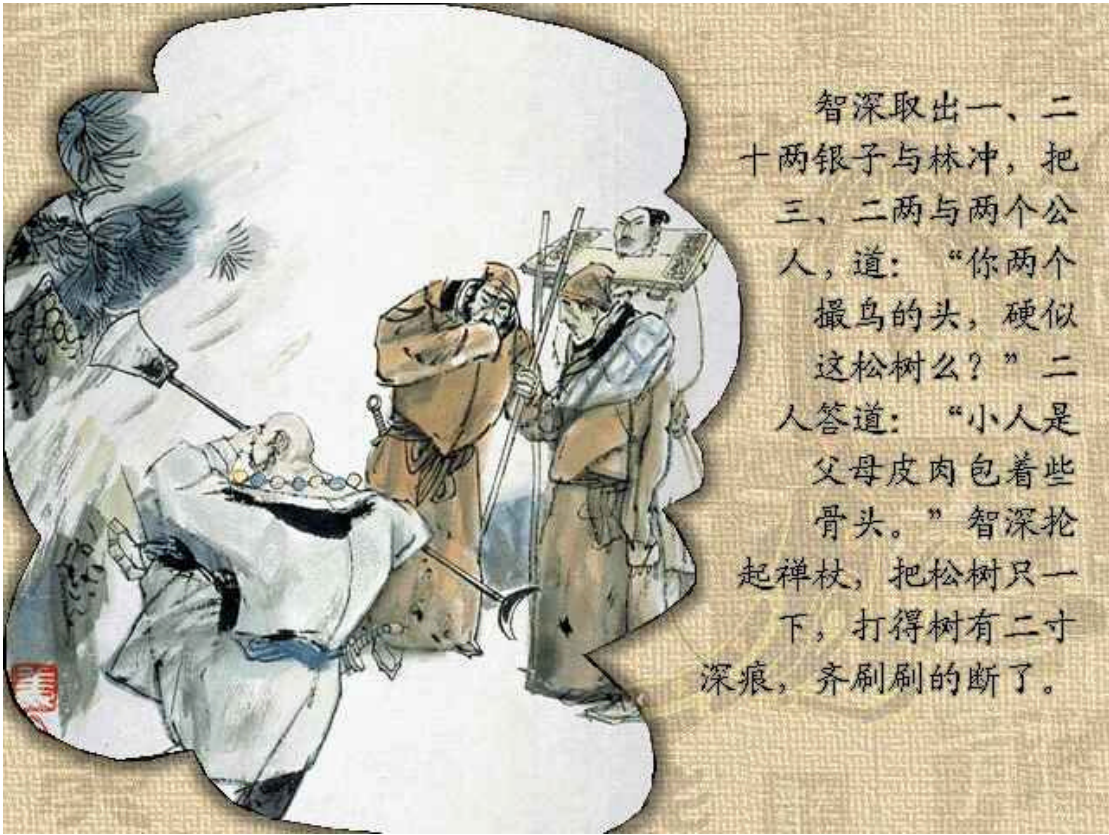 智深取出一、二
十两银子与林冲，把
三、二两与两个公
人，道：“你两个
撮鸟的头，硬似
这松树么？”二
人答道：“小人是
父母皮肉包着些
骨头。”智深抡
起禅杖，把松树只一
下，打得树有二寸
深痕，齐刷刷的断了。